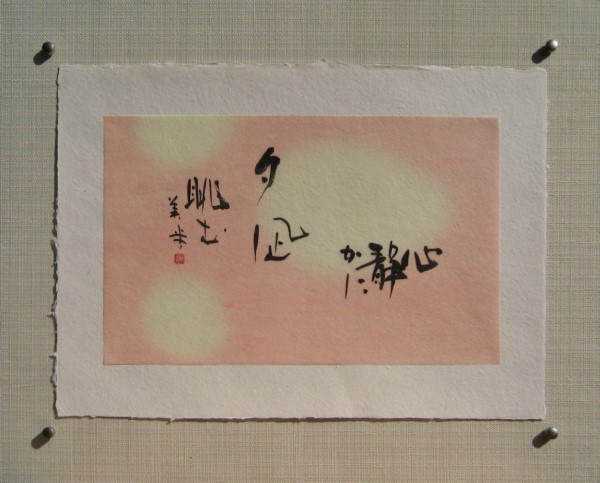 心静かに
夕凪
眺む
美歩